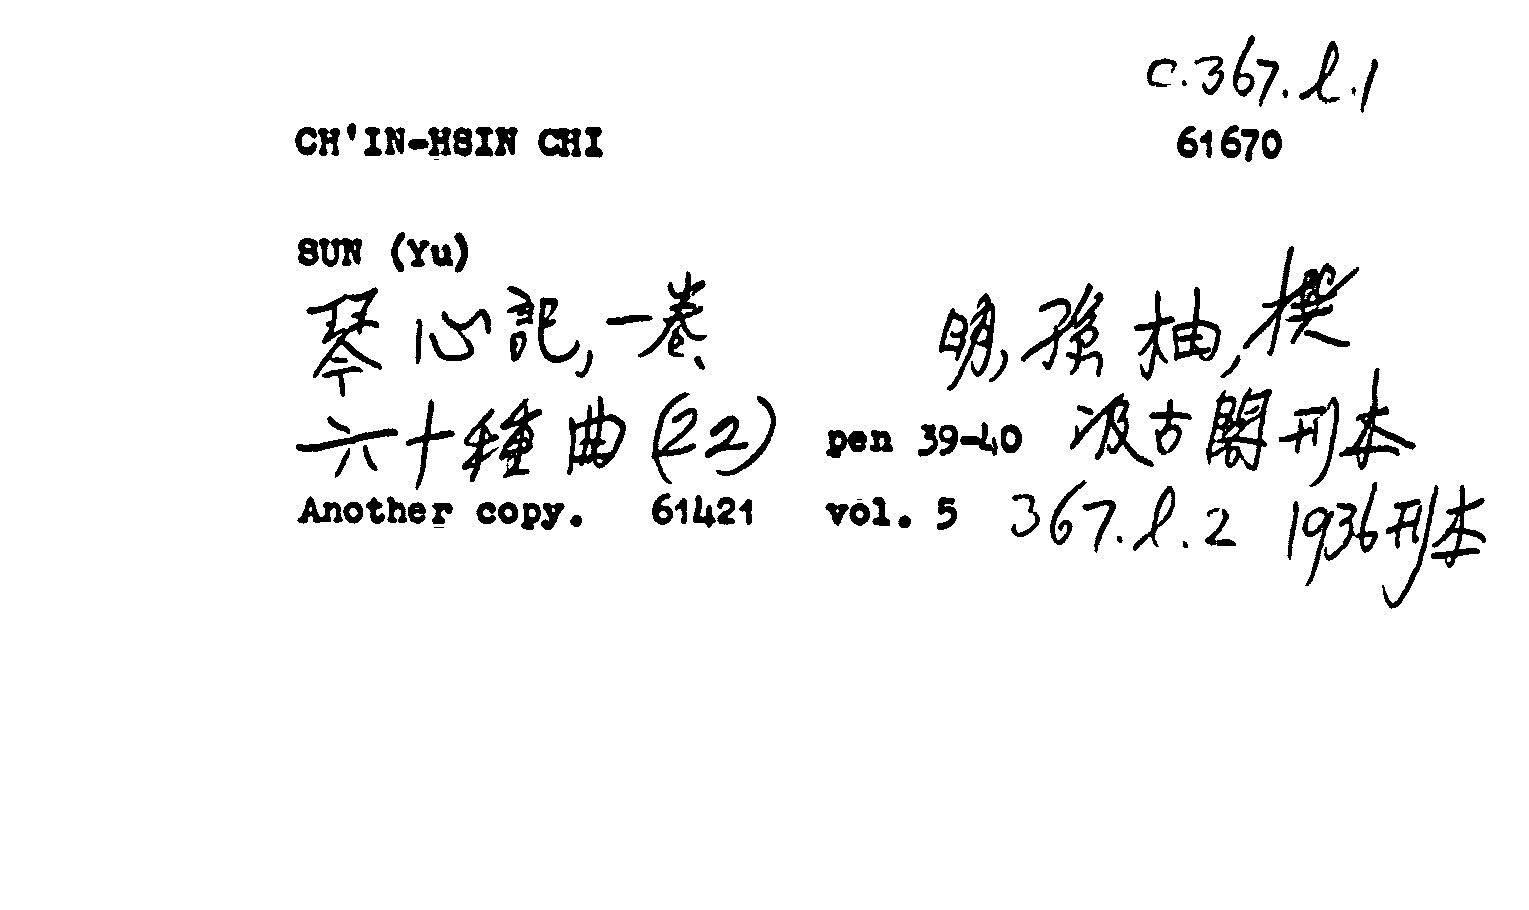 c.367.l.1
CH'IN-HSIN CHI 61670
SUN (Yu)
琴心記, 一卷 明, 孫柚, 撰
六十種曲(22) pen 39-40 汲古閣刊本
Another copy. 61421 vol. 5 367.l.2 1936刊本